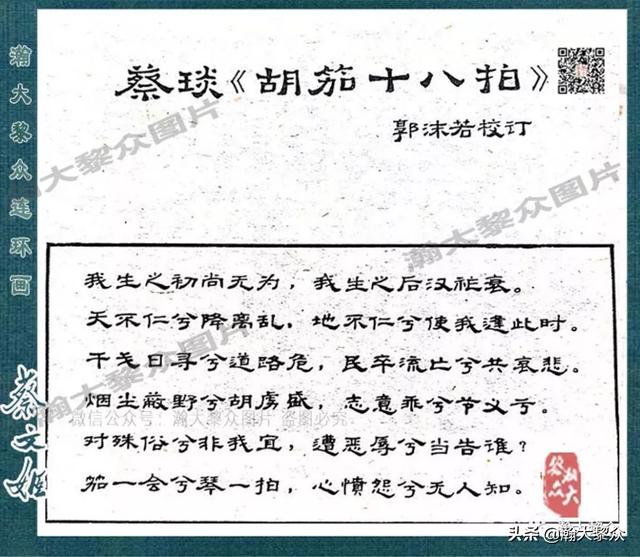 蔡琰《胡笳十八拍》
郭沫若校订
瀚大黎众连环画
蔡文姬
我生之初尚无为，我生之后汉祚衰。
天不仁兮降离乱，地不仁兮使我逢此时。
干戈日寻兮道路危，民卒流亡兮共哀悲。
烟尘蔽野兮胡虏盛，志意乖兮节义亏。
对殊俗兮非我宜，遭恶辱兮当告谁？
笳一会兮琴一拍，心愤怨兮无人知。
瀚大黎众图片
瀚大黎众图片
瀚大黎众图片
微信公众号：瀚大黎众图片 盗图必究
瀚大黎众
头条@瀚大黎众